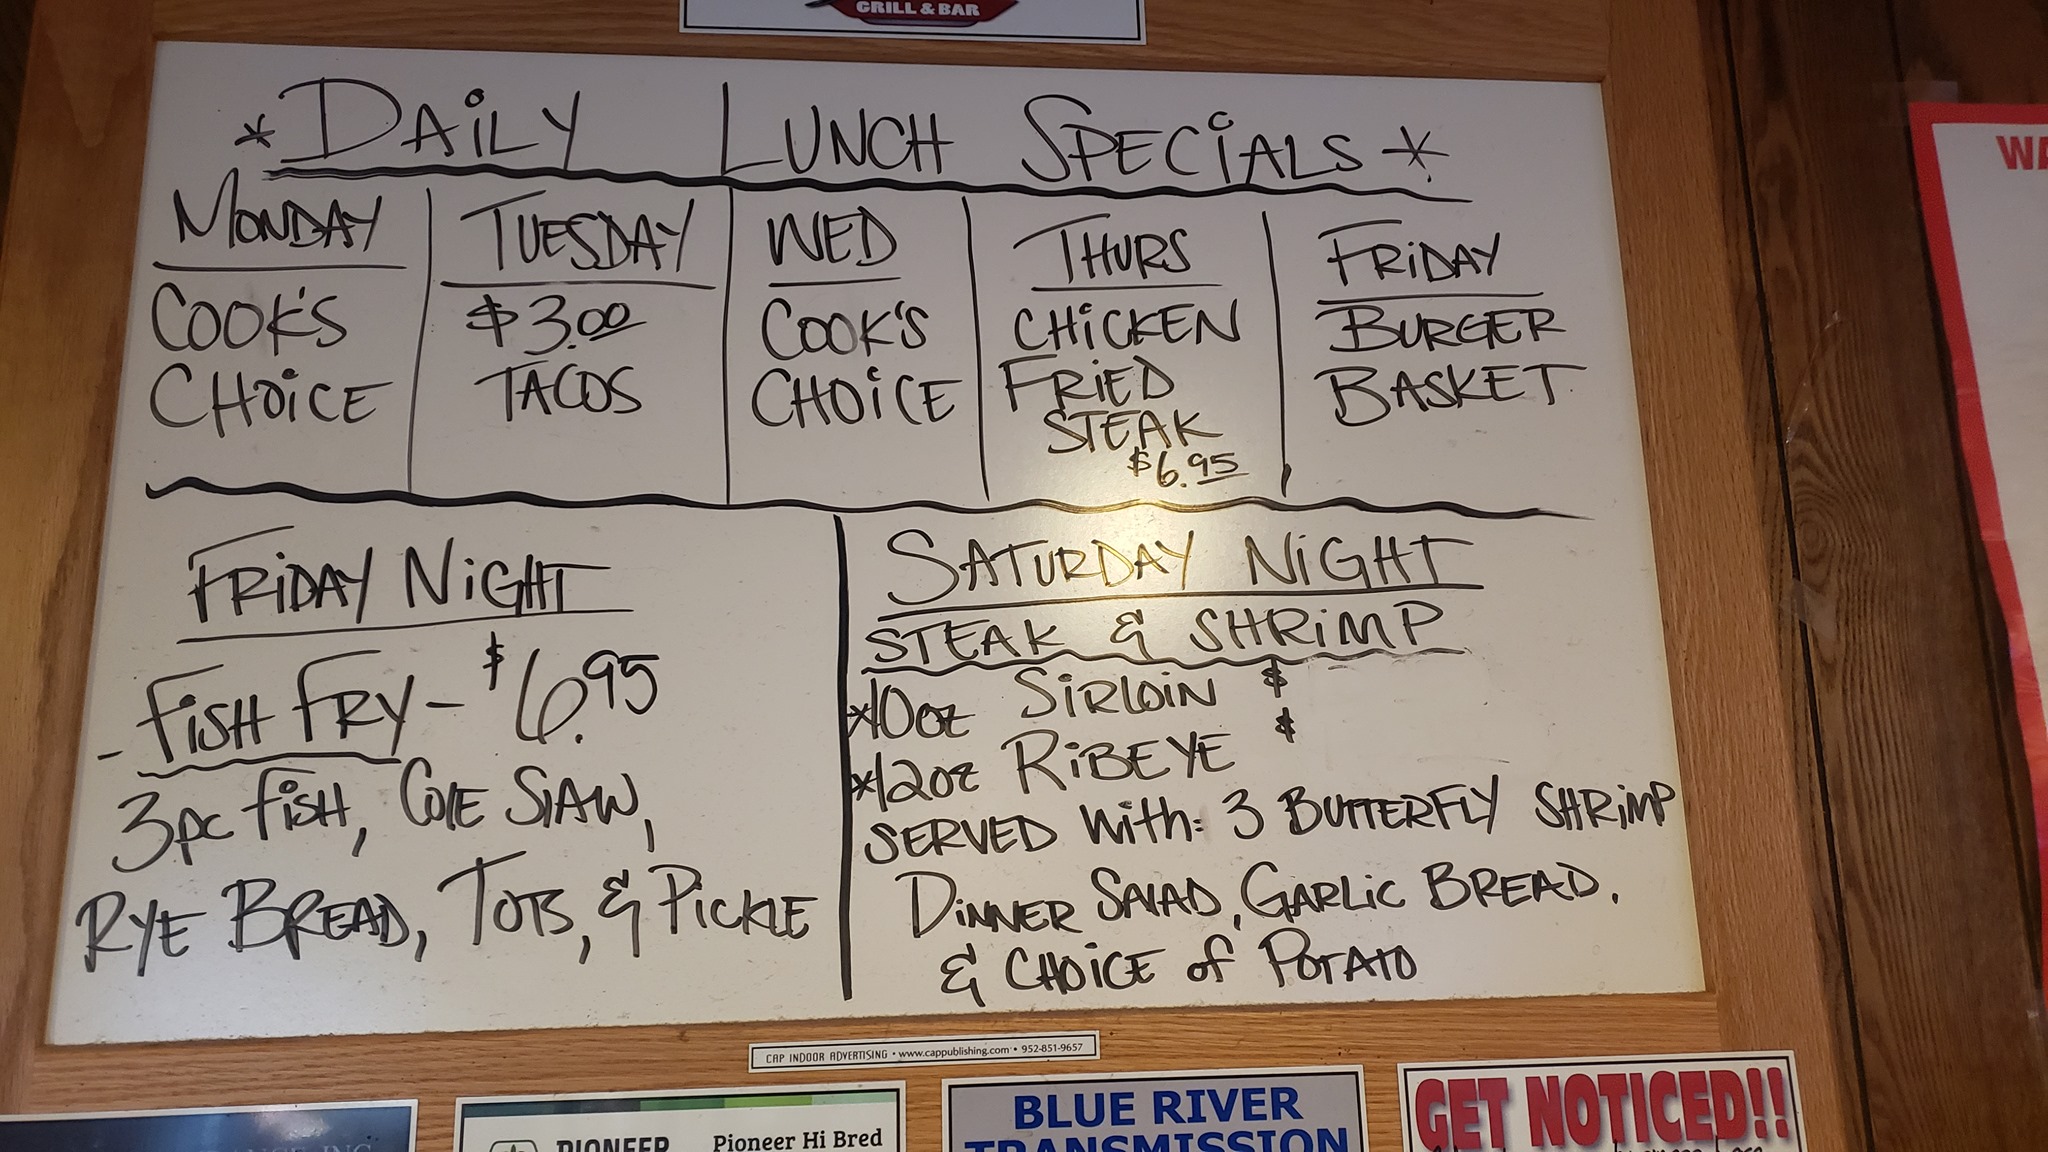 GRILL & BAR
* DAiLY LUNCH SPECiALS *
MONDAY
COOK'S
CHOiCE
TUESDAY
$3.00
TACOS
WED
COOK'S
CHOiCE
THURS
CHiCKEN
FRiED
STEAK
$6.95
FRiDAY
BURGER
BASKET
FRiDAY NiGHT
- FiSH FRY - $6.95
3pc fiSH, COlE SlAW,
RYE BREAD, TOTS, & PiCKLE
SATURDAY NiGHT
STEAK & SHRiMP
*10oz SiRLOiN $
*12oz RiBEYE $
SERVED With: 3 BUTTERFLY SHRiMP
DiNNER SAlAD, GARLiC BREAD,
& CHOiCE of POTATO
CAP INDOOR ADVERTISING • www.cappublishing.com • 952-851-9657
PIONEER
Pioneer Hi Bred
BLUE RIVER
TRANSMISSION
GET NOTICED!!